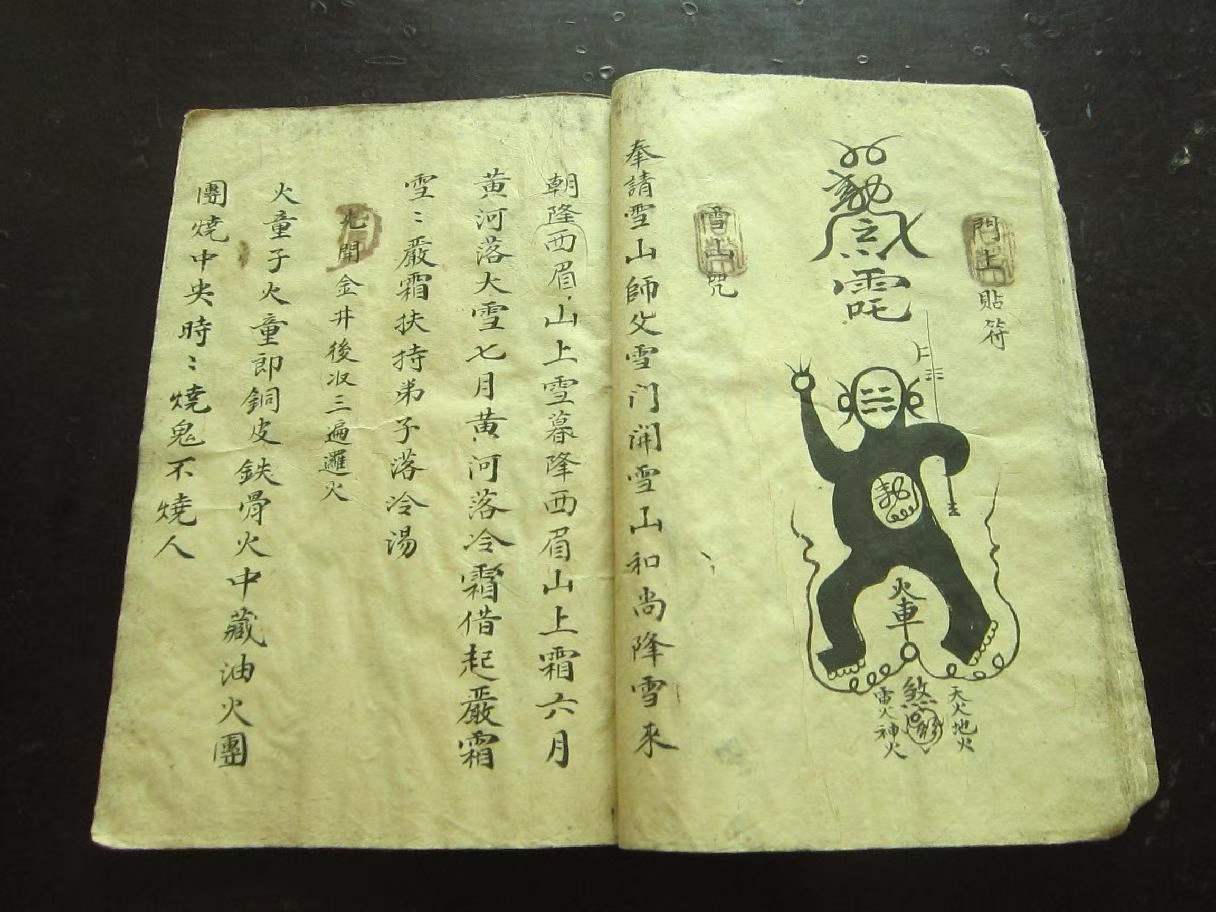 門上貼符
火車
煞
天火地火
雷火神火
雪山咒
奉請雪山師父雪门開雪山和尚降雪來
朝隆西眉山上雪暮降西眉山上霜六月
黄河落大雪七月黄河落冷霜借起嚴霜
雪〻嚴霜扶持弟子落冷湯
開金井後収三遍邏火
火童子火童郎銅皮鉄骨火中藏油火團
團燒中央時〻燒鬼不燒人